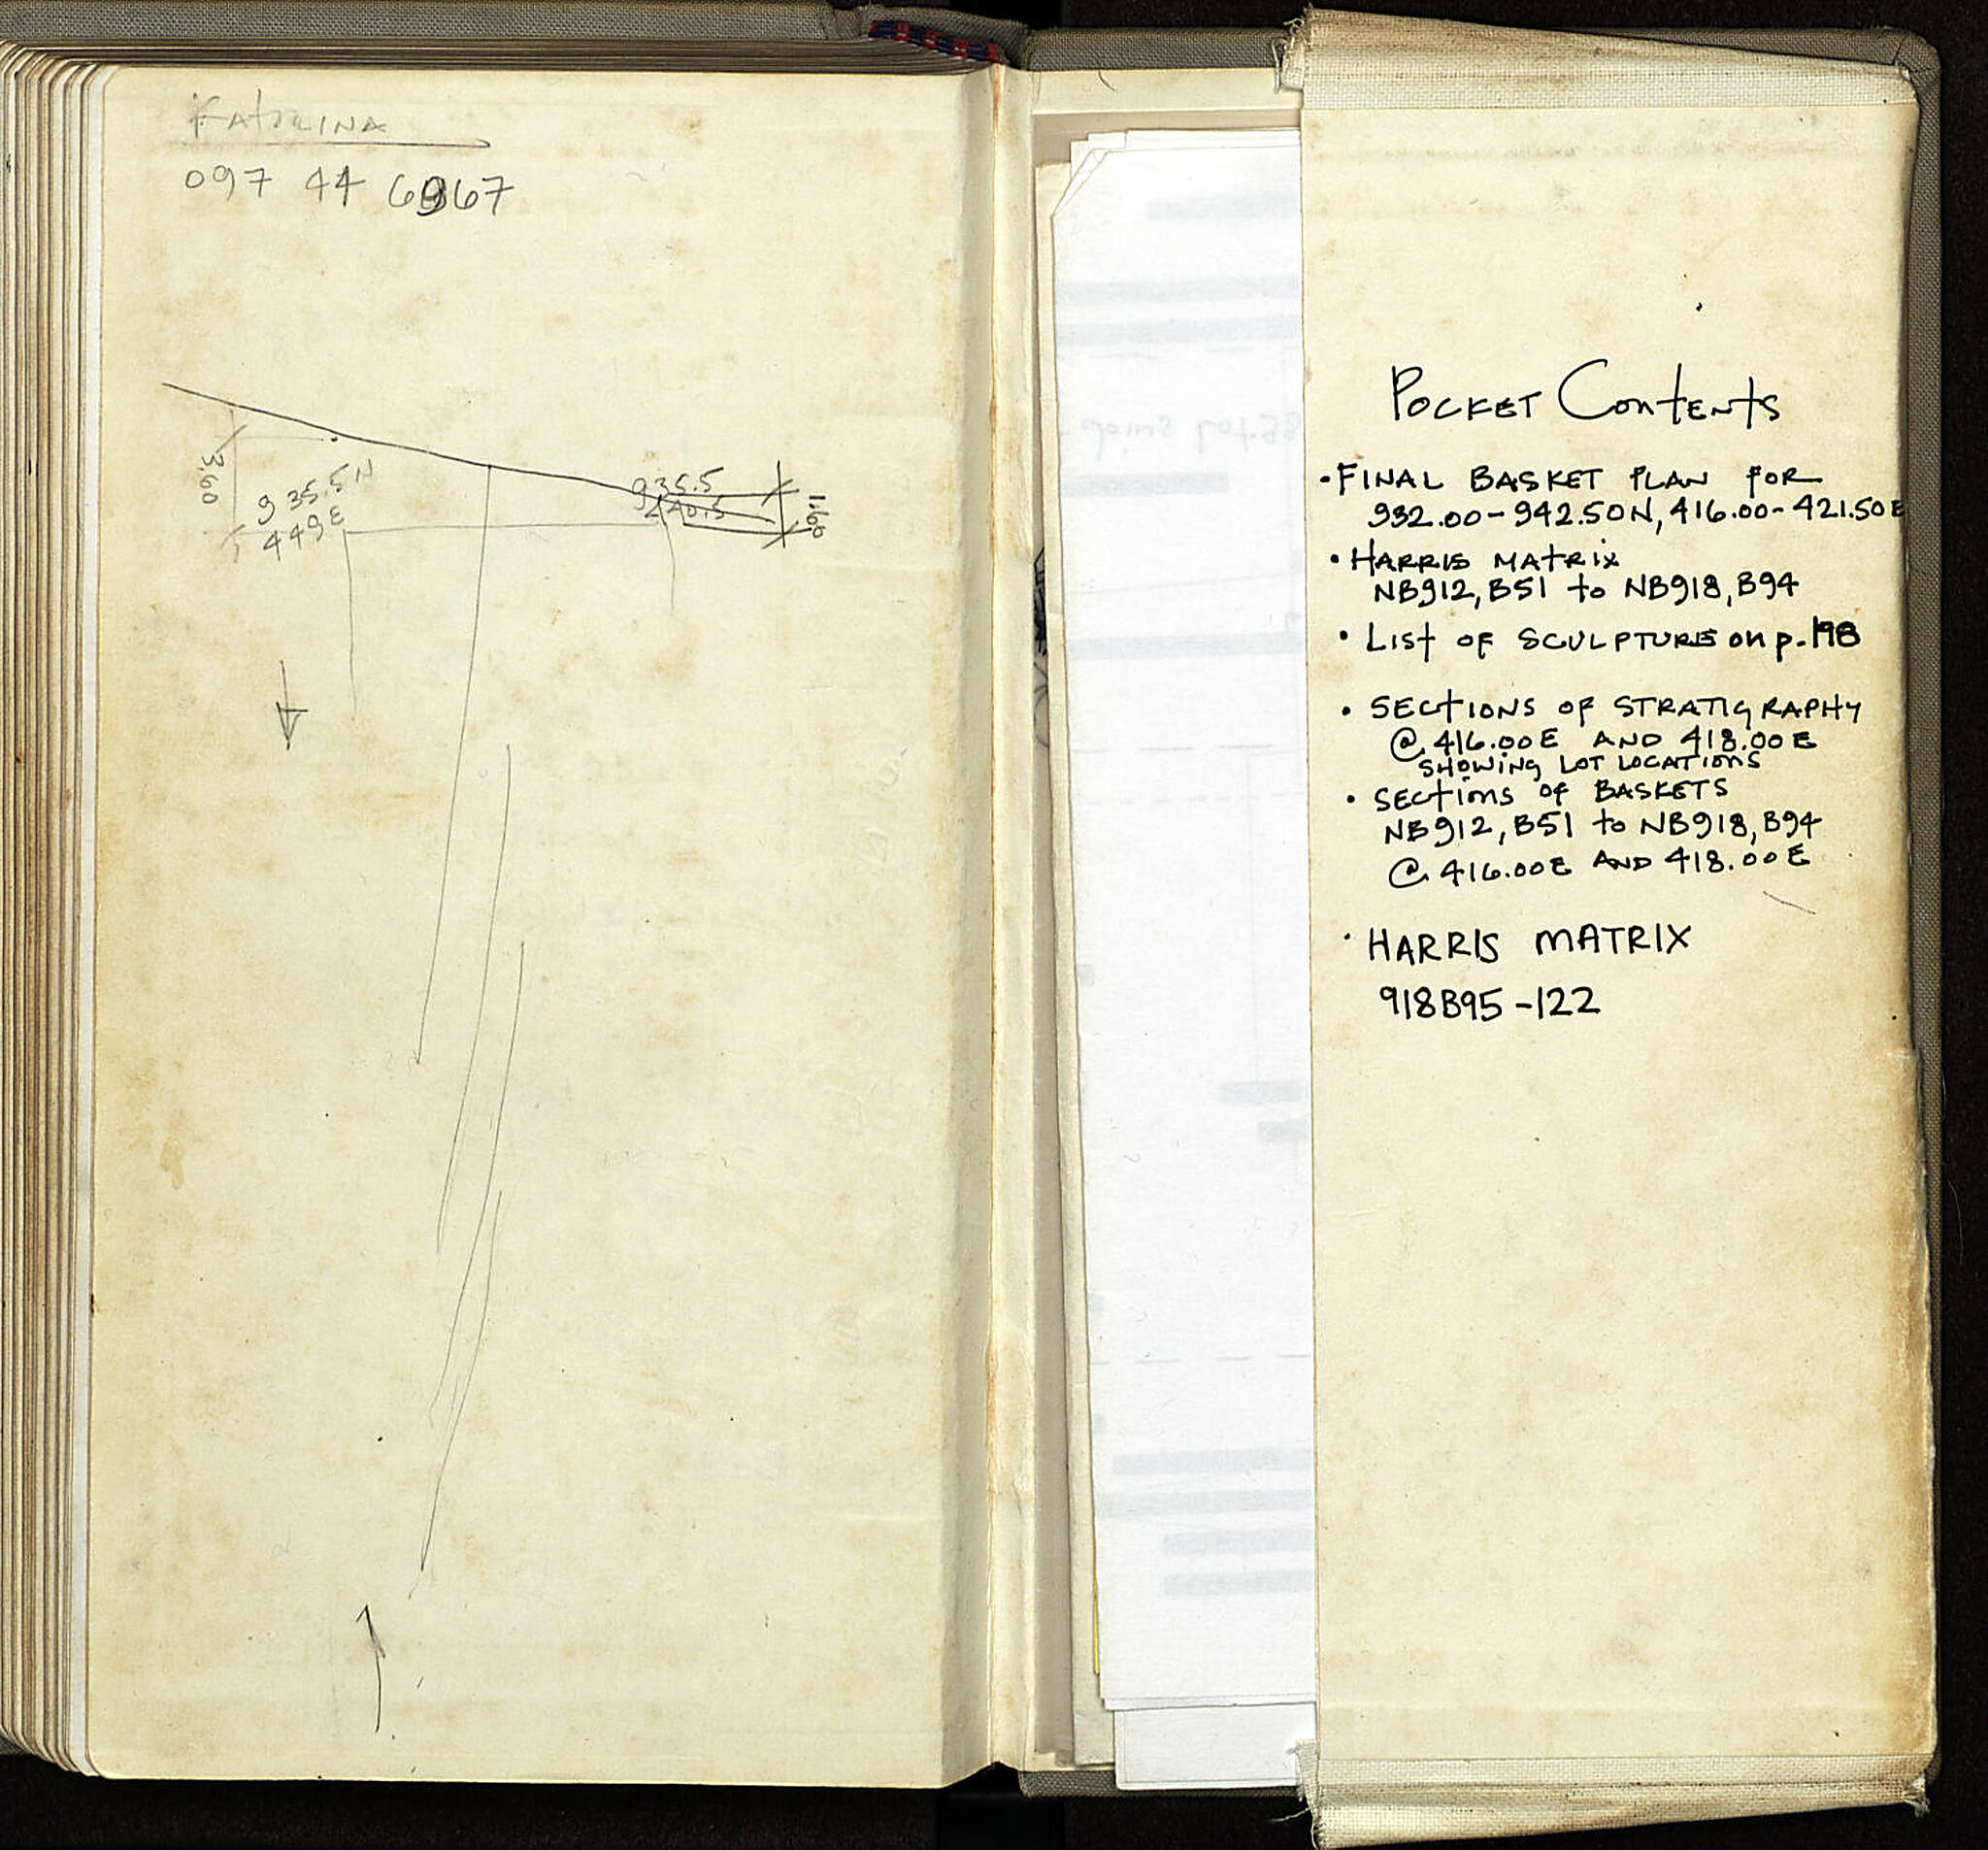 KATRINA
097 44 6967
3.60
935.5N
449E
935.5
440.5
1.60
POCKET CONTENTS
• FINAL BASKET PLAN FOR
932.00-942.50N, 416.00-421.50E
• HARRIS MATRIX
NB912, B51 to NB918, B94
• LIST OF SCULPTURE on p. 198
• SECTIONS OF STRATIGRAPHY
@ 416.00E AND 418.00E
SHOWING LOT LOCATIONS
• SECTIONS OF BASKETS
NB912, B51 to NB918, B94
@ 416.00E AND 418.00E
• HARRIS MATRIX
918B95-122